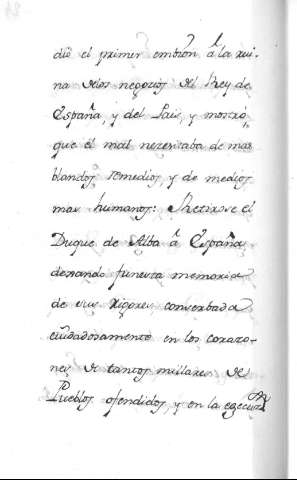 dió el primer embión â la rui-
na delos negocios del Rey de
España, y del Pais, y mostró,
que el mal nezesitaba de mas
blandos remedios, y de medios
mas humanos: Retirose el
Duque de Alba â España
dexando funesta memoria
de sus rigores conserbada
cuidadosamente en los corazo-
nes de tantos millares de
Pueblos ofendidos, y en la egecuz.on